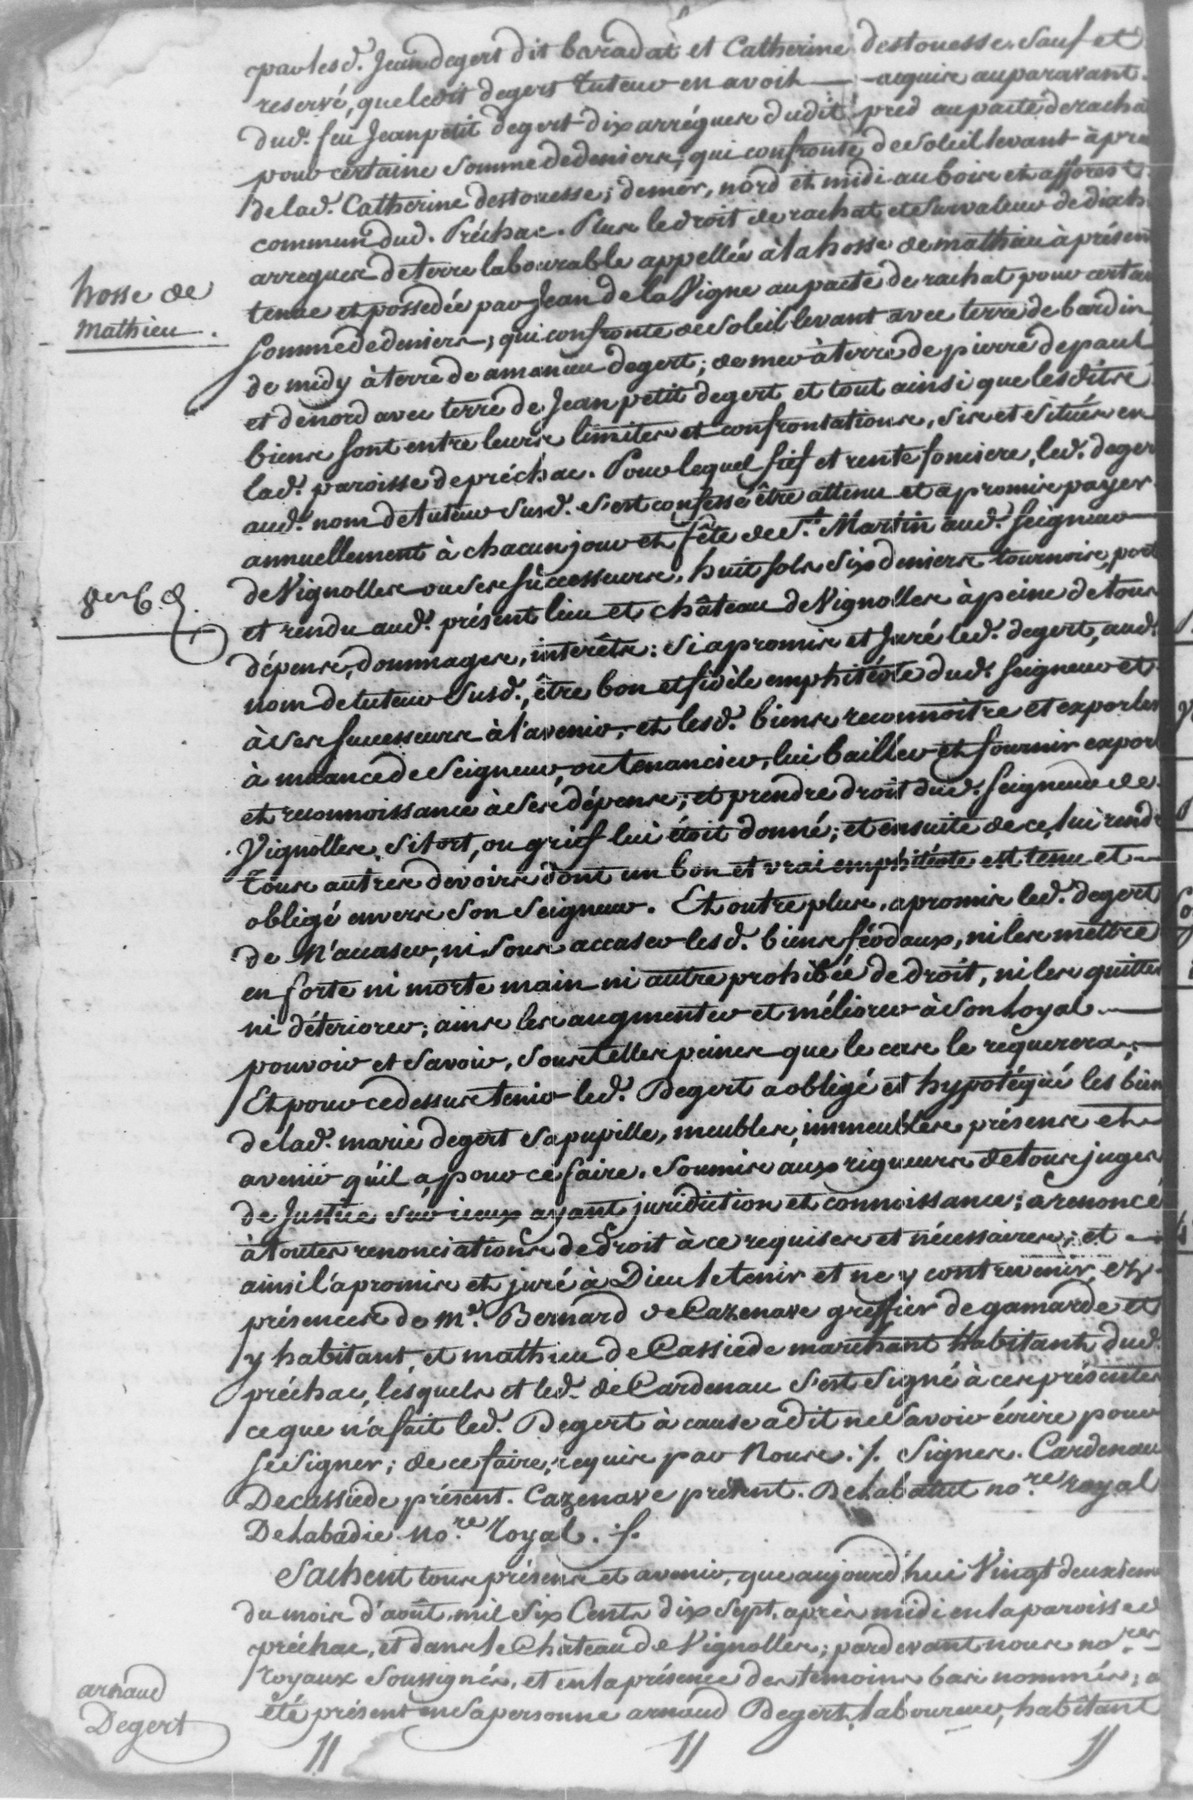 par lesd. Jean degert dit baradat et Catherine destouesse. Sauf et
reservé, que ledit degert tuteur en avoit — acquis auparavant
dud. feu Jean petit degert dix arrégues dudit pred au pacte de rachat
pour certaine somme de deniers, qui confronte de soleil levant à pre
de lad. Catherine destouesse; de mer, nord et midi au bois et afforest
commun dud. Préchac. Plus le droit de rachat et survaleur de dix h
arregues de terre labourable appellée à la hosse de mathieu à présent
hosse de
Mathieu.
tenue et possedée par Jean de la Vigne au pacte de rachat pour certai
somme de deniers, qui confronte de soleil levant avec terre de bardin,
de midy à terre de amanieu degert; de mer à terre de pierre depaul
et de nord avec terre de Jean petit degert, et tout ainsi que lesdits
biens sont entre leurs limites et confrontations, sis et situés en
lad. paroisse de préchac. Pour lequel fief et rente fonciere, led. deger
aud. nom de tuteur susd. s'est confessé être attenu et a promis payer
annuellement à chacun jour et fête de St. Martin aud. seigneur
de Vignolles ou ses successeurs, huit sols six deniers tournois, port
8s 6d.
et rendu aud. présent lieu et château de Vignolles à peine de tous
dépens, dommages, interêts: Si a promis et juré led. degert, aud.
nom de tuteur susd., être bon et fidèle emphitéote dud. seigneur et
à ses successeurs à l'avenir, et lesd. biens reconnoitre et exporles
à muance de seigneur, ou tenancier, lui bailler et fournir expor
et reconnoissance à ses dépens; et prendre droit dud. seigneur de
Vignolles, si tort, ou grief lui étoit donné; et ensuite de ce, lui rend
tous autres devoirs dont un bon et vrai emphitéote est tenu et
obligé envers son seigneur. Et outre plus, a promis led. degert
de n'accaser, ni sous accaser lesd. biens féodaux, ni les mettre
en forte ni morte main ni autre prohibée de droit, ni les quitter
ni déteriorer; ains les augmenter et méliorer à son Loyal
pouvoir et savoir, sous telles peines que le cas le requerera;
Et pour ce dessus tenir led. Degert a obligé et hypotéqué les bien
de lad. marie degert sa pupille, meubles, immeubles présens et
avenir qu'il a, pour ce faire, soumis aux rigueurs de tous juges
de Justice sur iceux ayant juridiction et connoissance; a renoncé
à toutes renonciations de droit à ce requises et nécessaires; et
ainsi l'a promis et juré à Dieu le tenir et ne y contrevenir, ez
présences de Me. Bernard de Cazenave greffier de gamarde et
y habitant, et mathieu de Cassiede marchant habitant dud.
préchac, lesquels et led. de Cardenau s'est signé à ces présentes
ce que n'a fait led. Degert à cause a dit ne savoir écrire pour
se signer; de ce faire, requis par Nous ./. Signes. Cardenau
Decassiede présent. Cazenave présent. Delabatut no.re royal
Delabadie no.re royal ./.
Sachent tous présens et avenir, que aujourd'hui Vingt deuxiem
du mois d'août, mil six Cents dix sept, après midi en la paroisse
préchac, et dans le Château de Vignolles; pardevant nous no.res
royaux soussignés, et en la présence des temoins bas nommés; a
été présent en sa personne arnaud Degert, laboureur, habitant
arnaud
Degert